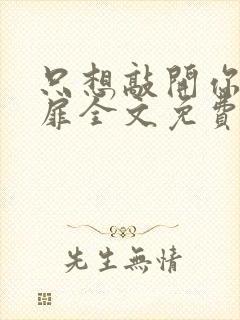 只想敲開你
扉全文免費
先生無情